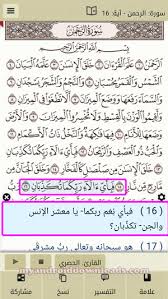 سورة: الرحمن - آية: 16
سُورَةُ الرَّحْمَٰن
بِسْمِ اللَّهِ الرَّحْمَٰنِ الرَّحِيمِ
الرَّحْمَٰنُ ١ عَلَّمَ الْقُرْءَانَ ٢ خَلَقَ الْإِنسَٰنَ ٣ عَلَّمَهُ الْبَيَانَ ٤
الشَّمْسُ وَالْقَمَرُ بِحُسْبَانٍ ٥ وَالنَّجْمُ وَالشَّجَرُ يَسْجُدَانِ ٦
وَالسَّمَاءَ رَفَعَهَا وَوَضَعَ الْمِيزَانَ ٧ أَلَّا تَطْغَوْا فِي الْمِيزَانِ ٨
وَأَقِيمُوا الْوَزْنَ بِالْقِسْطِ وَلَا تُخْسِرُوا الْمِيزَانَ ٩ وَالْأَرْضَ
وَضَعَهَا لِلْأَنَامِ ١٠ فِيهَا فَٰكِهَةٌ وَالنَّخْلُ ذَاتُ الْأَكْمَامِ ١١
وَالْحَبُّ ذُو الْعَصْفِ وَالرَّيْحَانُ ١٢ فَبِأَيِّ ءَالَاءِ رَبِّكُمَا تُكَذِّبَانِ ١٣
خَلَقَ الْإِنسَٰنَ مِن صَلْصَٰلٍ كَالْفَخَّارِ ١٤ وَخَلَقَ الْجَانَّ مِن مَّارِجٍ مِّن نَّارٍ ١٥
فَبِأَيِّ ءَالَاءِ رَبِّكُمَا تُكَذِّبَانِ ١٦
( 16 ) فبأي نِعَم ربكما- يا معشر الإنس
والجن- تكذِّبان؟
( 17 ) هو سبحانه وتعالى ربُّ مشرقَي
القارئ: الحصري
علامة
التفسير
نسخ
مشاركة
myandroiddownloads.com